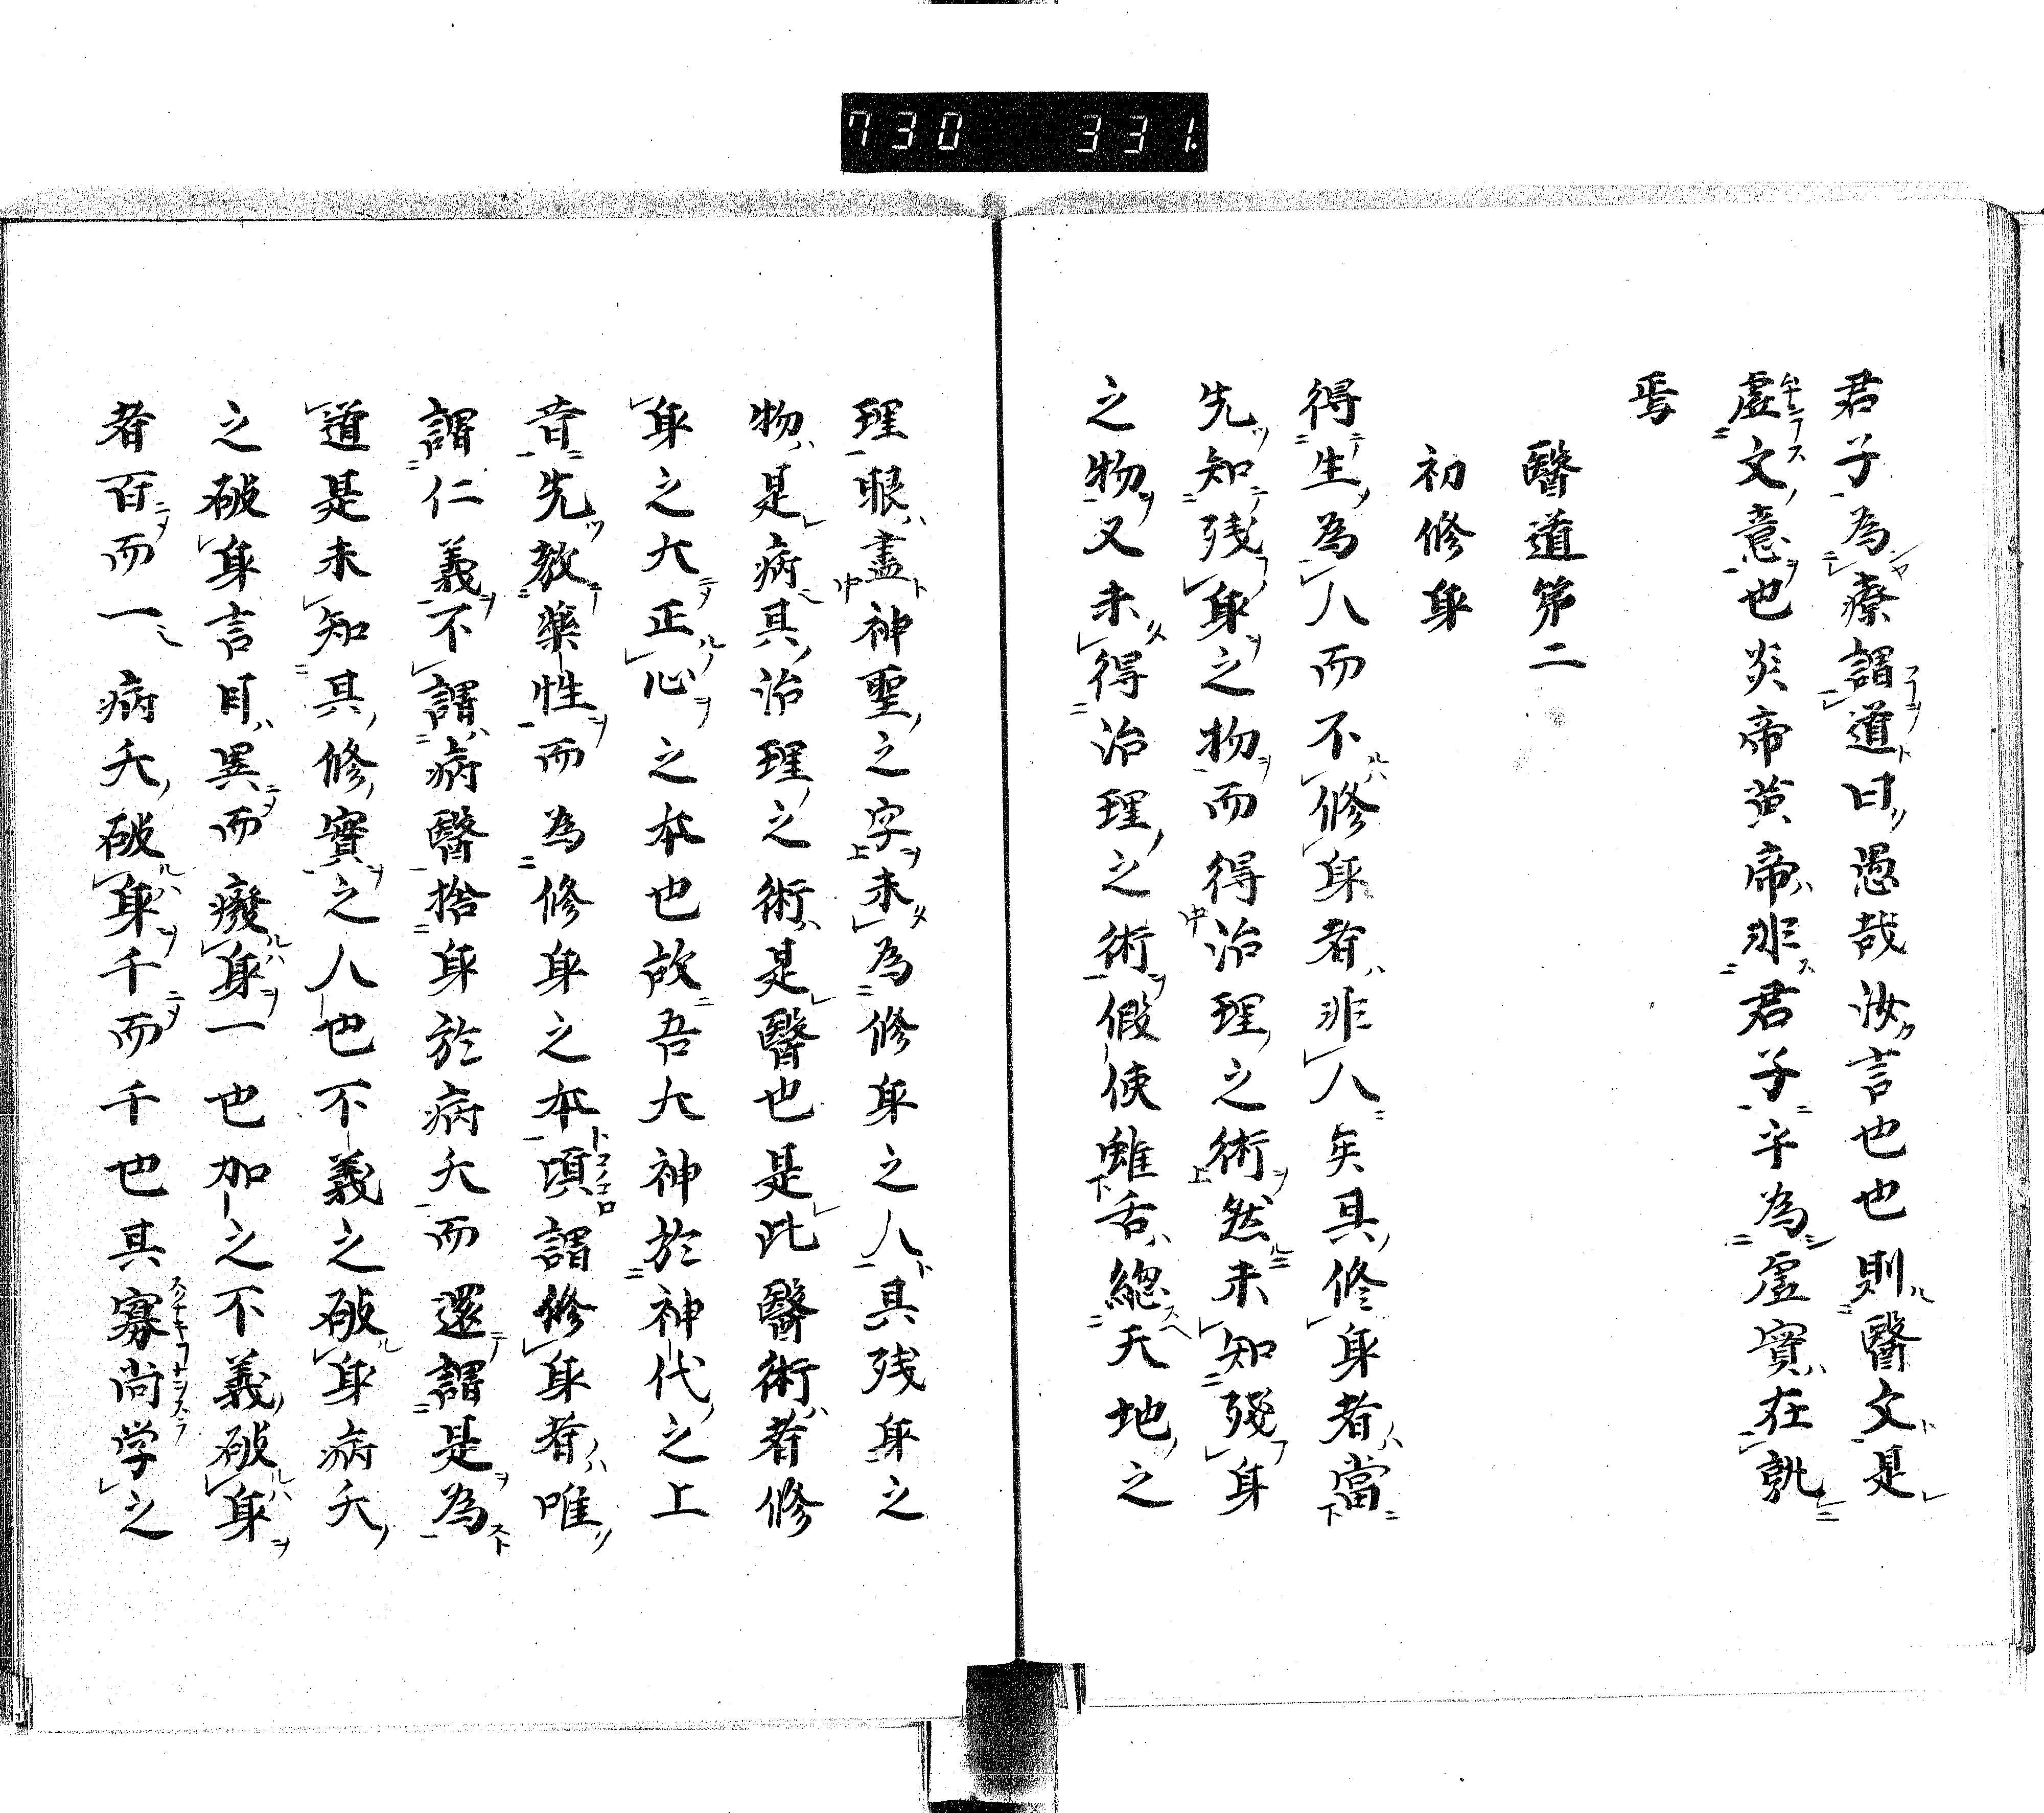 730 331.
君子為療謂道曰愚哉汝言也也則醫文是
虛文意也炎帝黄帝非君子乎為虛實在孰
焉
醫道第二
初修身
得生為人而不修身者非人矣具修身者當
先知残身之物而得治理之術然未知殘身
之物又未得治理之術假使雖舌總天地之
理眼盡神聖之字未為修身之人具残身之
物是病其治理之術是醫也是此醫術者修
身之大正心之本也故吾大神於神代之上
昔先教藥性而為修身之本頃謂修身者唯
謂仁義不謂病醫捨身於病夭而還謂是為
道是未知其修實之人也不義之破身病夭
之破身言耳異而癈身一也加之不義破身
者百而一病夭破身千而千也其寡尚学之